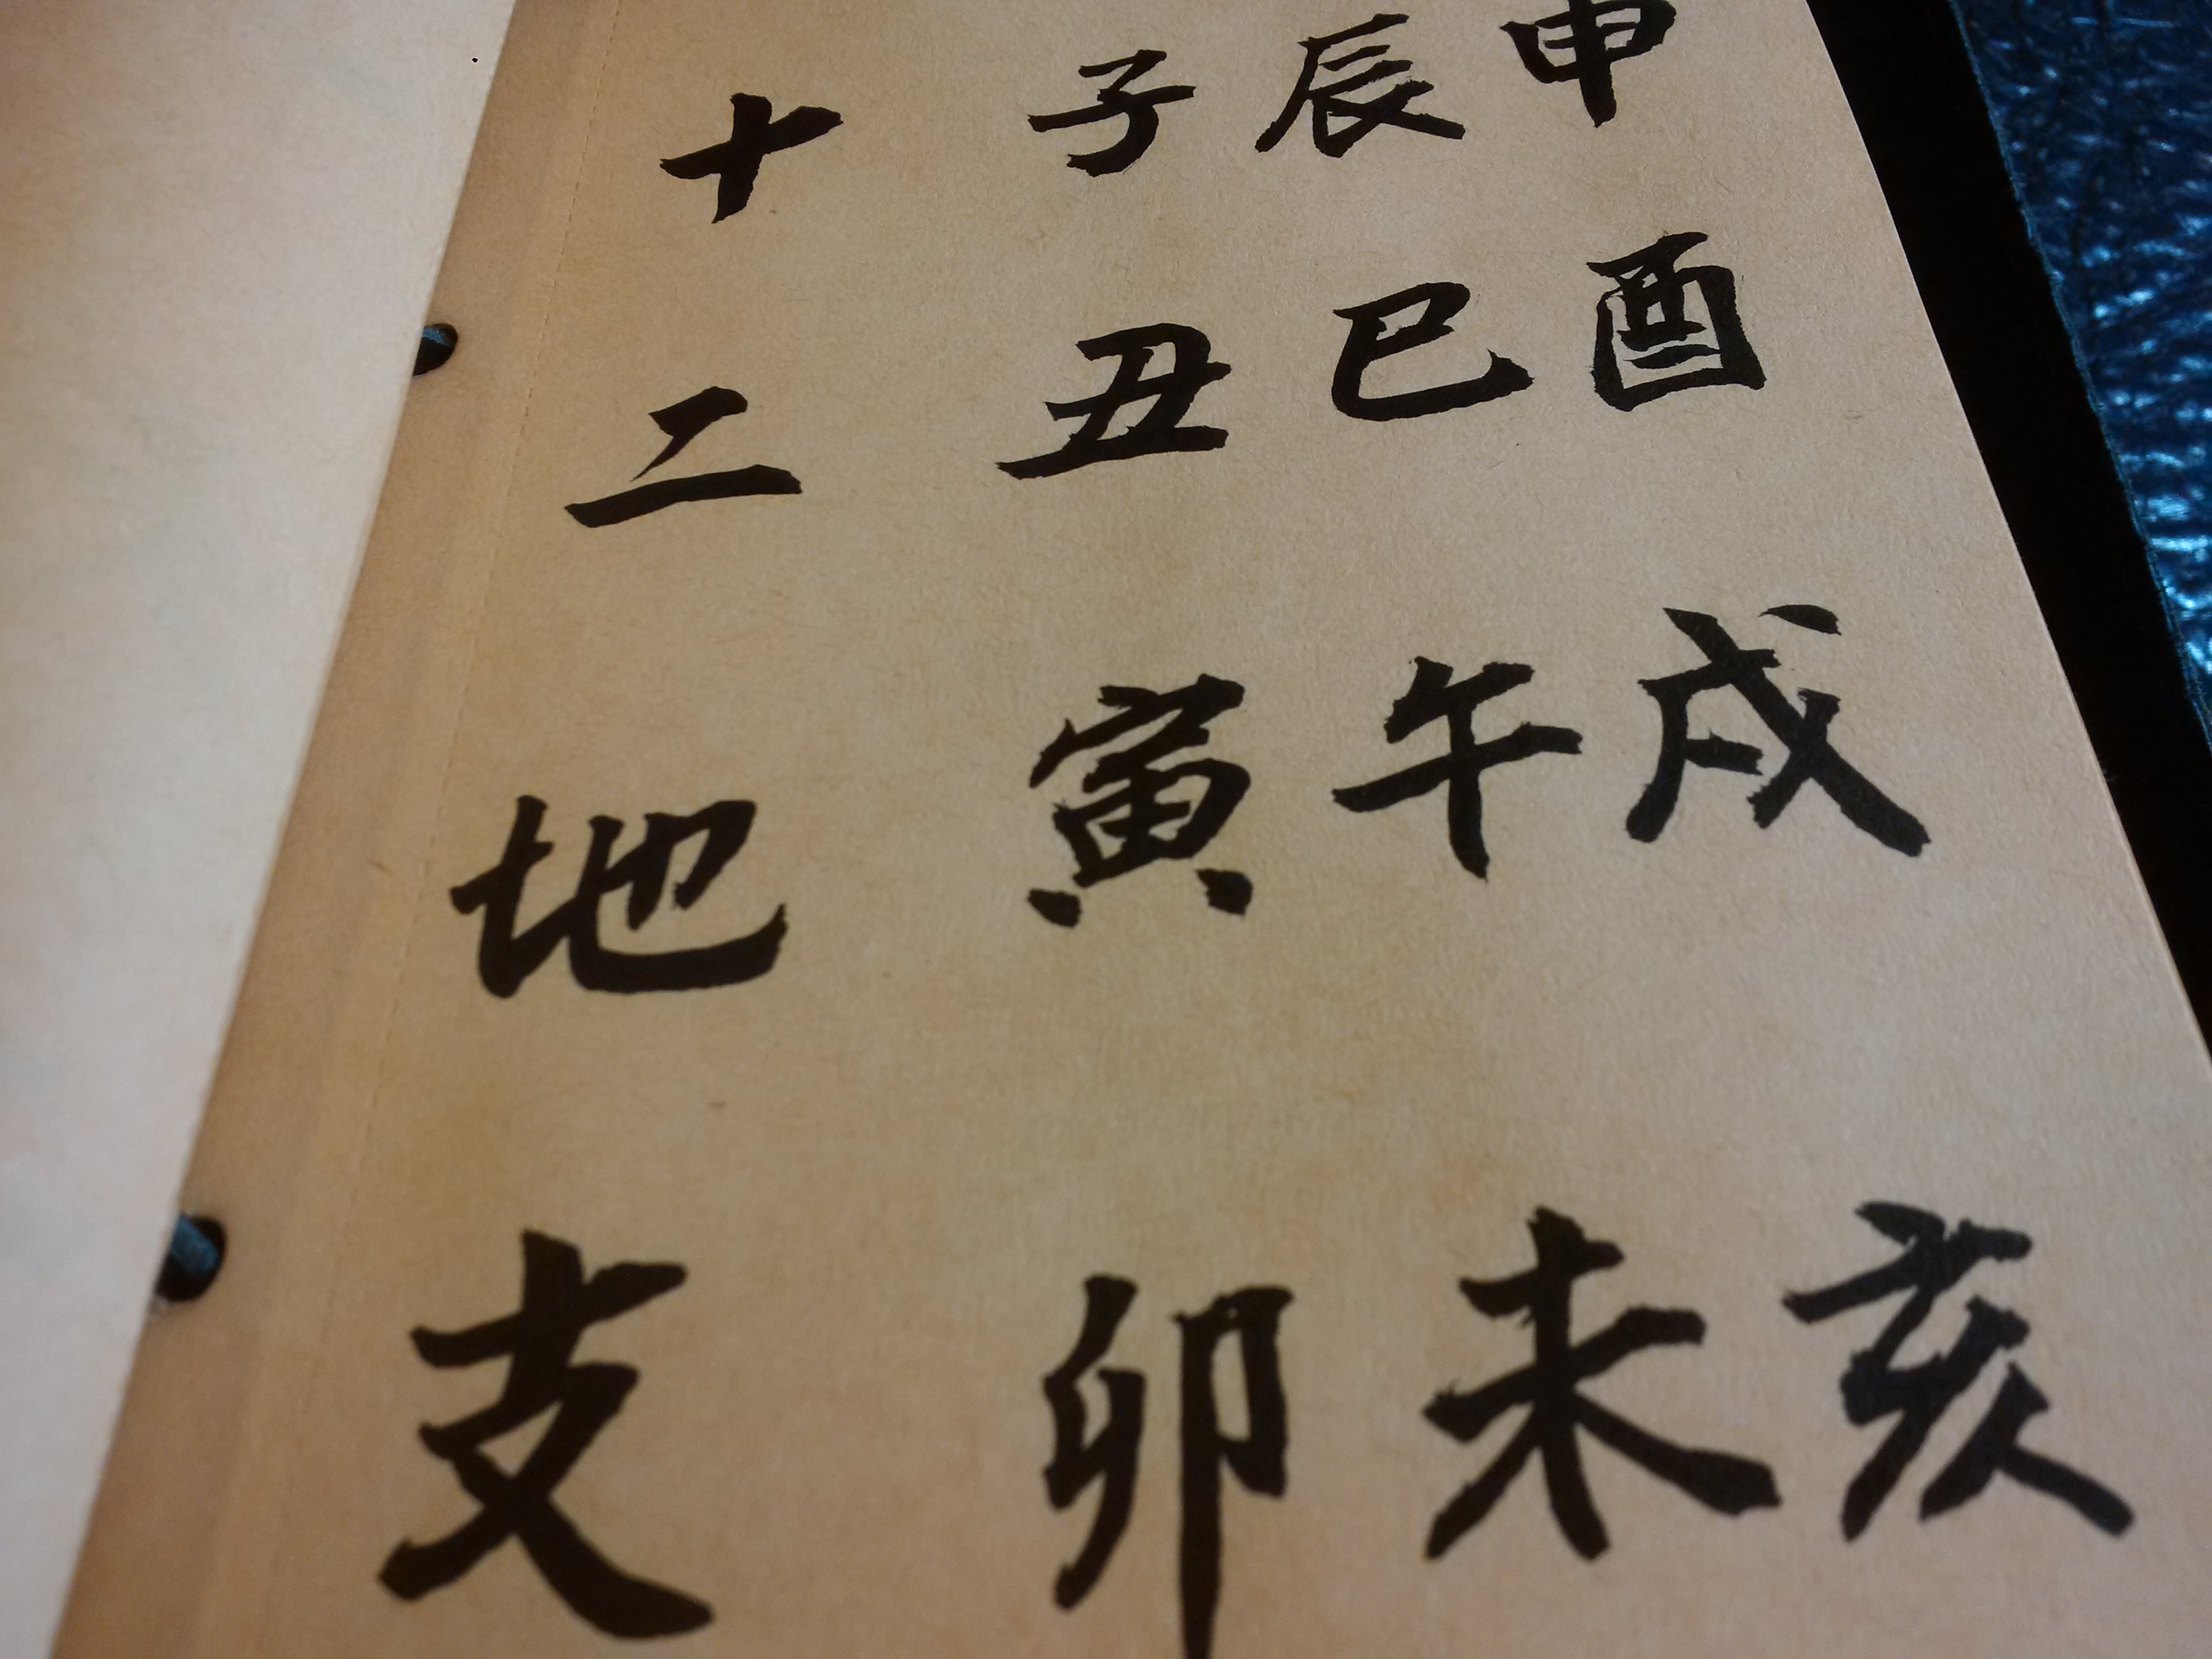 十二地支
子丑寅卯
辰巳午未
申酉戌亥